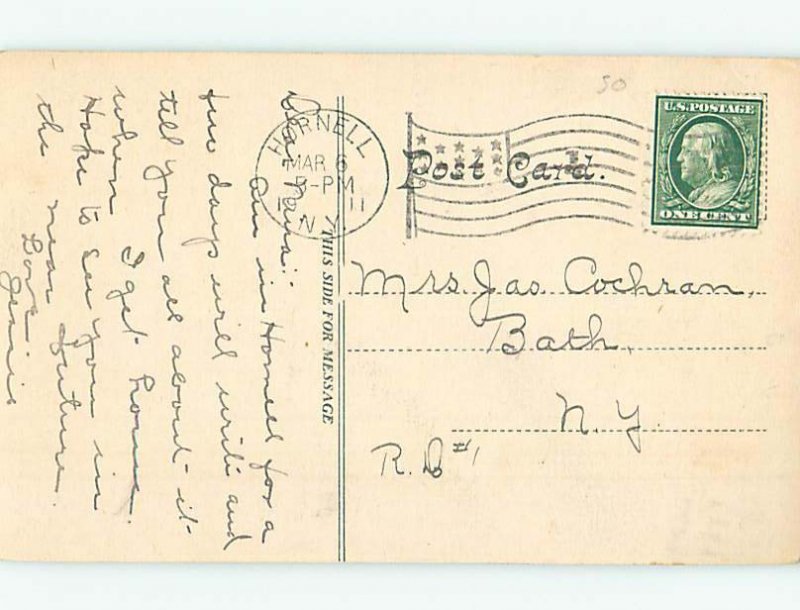 Am in Hornell for a
few days will write and
tell you all about it
when I get home.
Hope to see you in
the near future.
Love
Jennie
THIS SIDE FOR MESSAGE
HORNELL
MAR 6
-PM
11
N.Y.
Post Card.
50
U.S. POSTAGE
ONE CENT
Mrs. Jas. Cochran,
Bath,
N.Y.
R.D #1